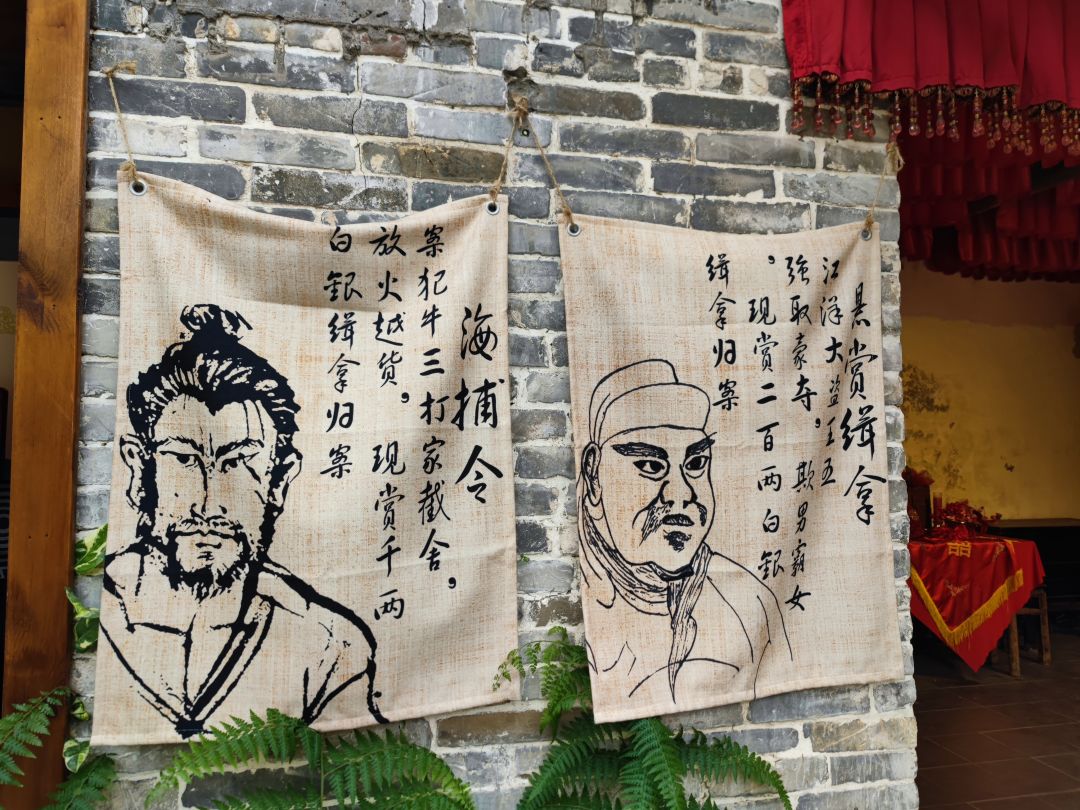 海捕令
案犯牛三打家截舍，
放火越货，现赏千两
白銀缉拿归案
悬赏缉拿
江洋大盗王五
强取豪夺，欺男霸女
，现赏二百两白銀
缉拿归案
囍